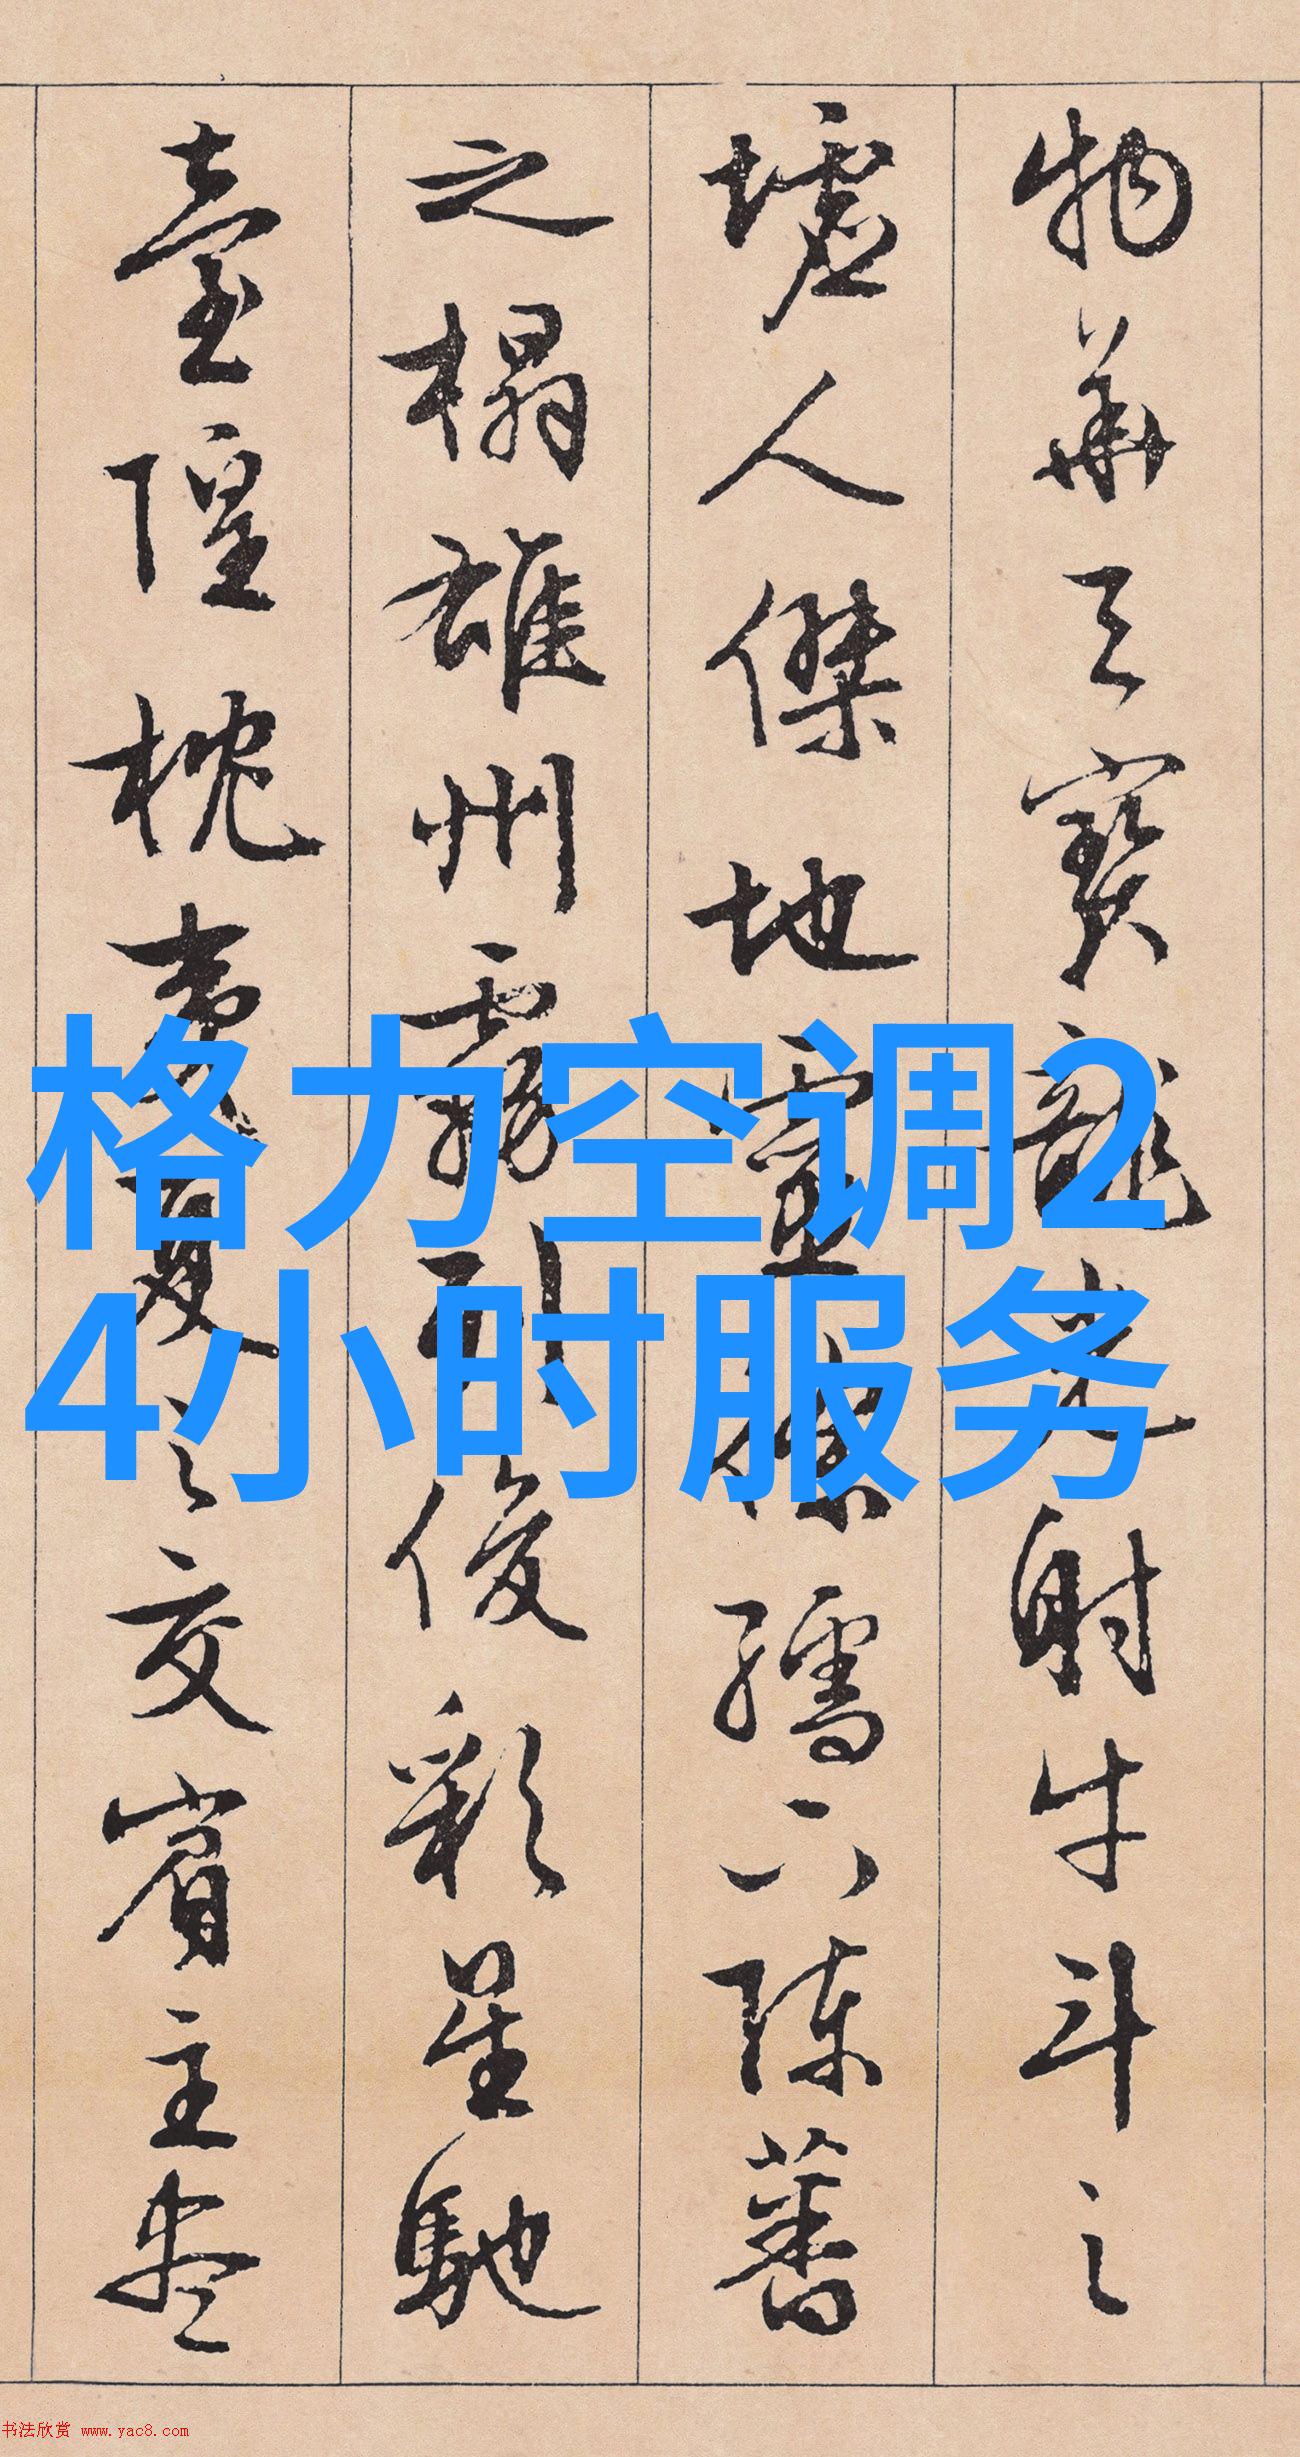 物華天寶龍光射牛斗之
墟人傑地靈徐孺下陳蕃
之榻雄州霧列俊彩星馳
臺隍枕夷夏之交賓主盡
格力空调2
4小时服务
书法欣赏 www.yac8.com